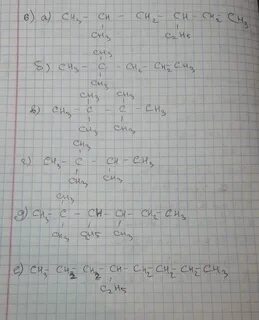 в) а) CH3 - CH - CH2 - CH - CH2 - CH3
CH3 C2H5
CH3
б) CH3 - C - CH2 - CH2 - CH3
CH3
CH3 CH3
в) CH3 - C - C - CH3
CH3 CH3
CH3
г) CH3 - C - CH - CH3
CH3 CH3
CH3
д) CH3 - C - CH - CH - CH2 - CH3
CH3 C2H5 CH3
е) CH3 - CH2 - CH2 - CH - CH2 - CH2 - CH2 - CH3
C2H5